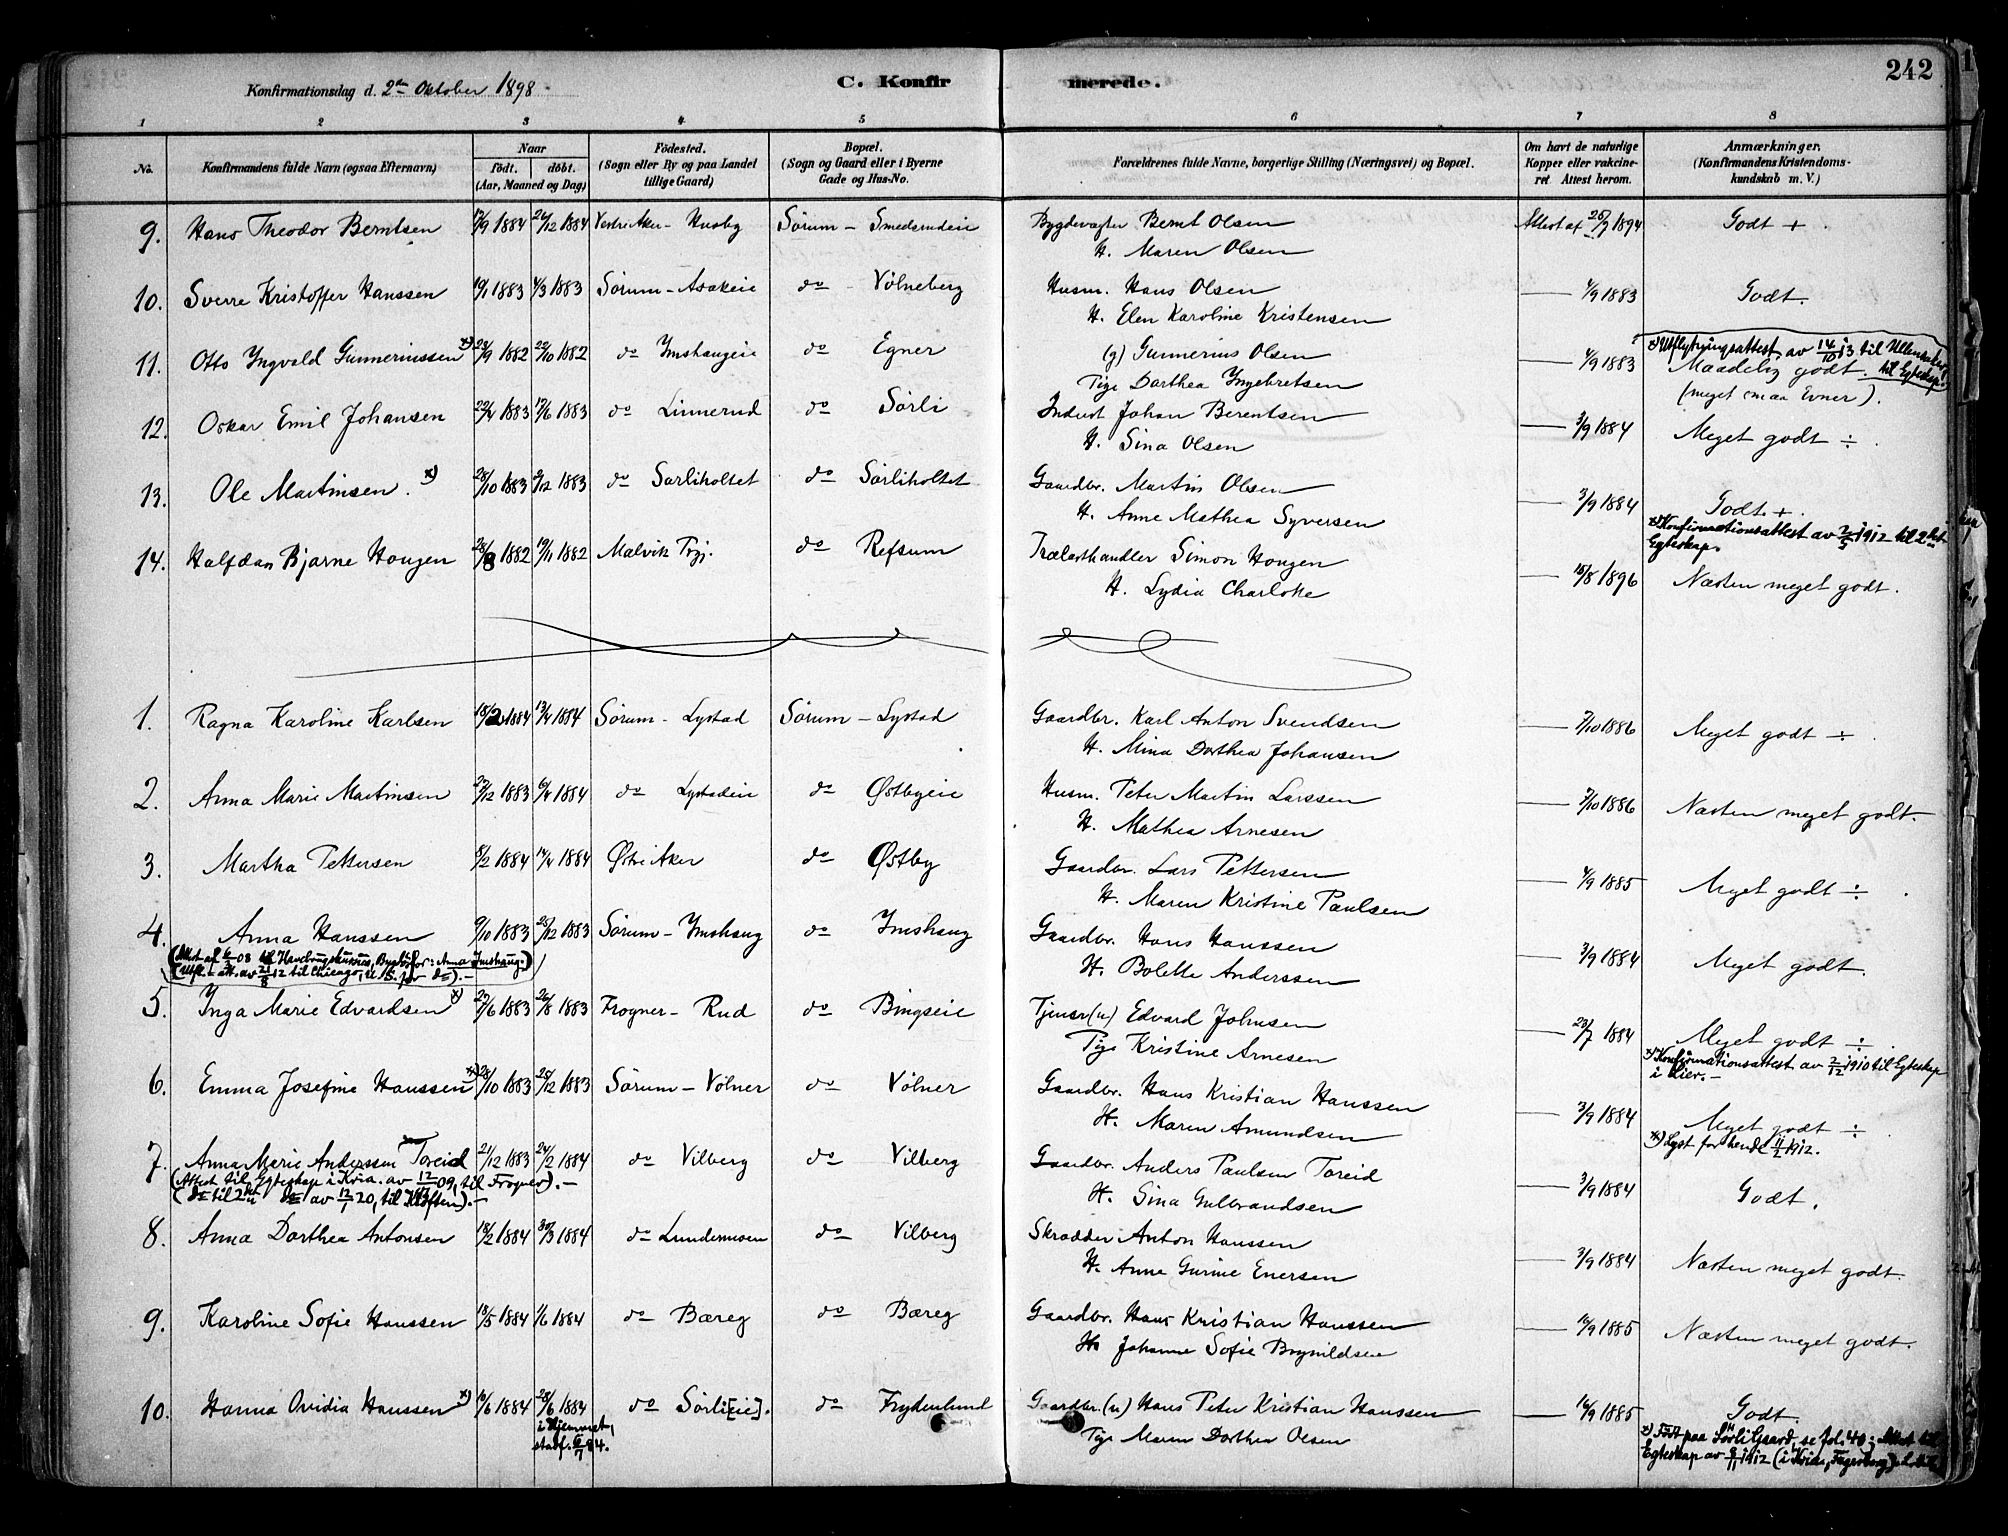 242
Konfirmationsdag d. 2den Oktober 1898.
C. Konfirmerede.
1 2 3 4 5 6 7 8
No. Konfirmandens fulde Navn (ogsaa Efternavn) Naar födt. döbt. (Aar, Maaned og Dag) Födested. (Sogn eller By og paa Landet tillige Gaard) Bopæl. (Sogn og Gaard eller i Byerne Gade og Hus-No. Forældrenes fulde Navne, borgerlige Stilling (Næringsvei) og Bopæl. Om havt de naturlige Kopper eller vakcineret Attest herom. Anmærkninger. (Konfirmandens Kristendomskundskab m. V.)
9. Hans Theodor Berntsen 17/9 1884 26/12 1884 Vestre Aker - Husby Sørum - Smedsrudeie Bygdevægter Bernt Olsen Attest af 26/9 1894 Godt +.
H. Maren Olsen
10. Sverre Kristoffer Hanssen 19/1 1883 4/3 1883 Sørum - Asakeie do Vølneberg Husm. Hans Olsen — 4/9 1883 Godt.
H. Elen Karoline Kristensen
11. Otto Ingvald Gunneriussen x) 23/9 1882 22/10 1882 do Imshaugeie do Egner (g) Gunnerius Olsen — 4/9 1883 Maadelig godt.
x) Utflytningsattest av 14/10 13 til Ullensaker til Egteskap.
Pige Dorthea Ingebretsen (meget smaa Evner).
12. Oskar Emil Johansen 22/4 1883 17/6 1883 do Linnerud do Sørli Inderst Johan Berentsen — 3/9 1884 Meget godt ÷.
H. Sina Olsen
13. Ole Martinsen. x) 28/10 1883 9/12 1883 do Sørliholtet do Sørliholtet Gaardbr. Martin Olsen — 3/9 1884 Godt +.
H. Anne Mathea Syversen
x) Konfirmationsattest av 2/5 1912 til 2det Egteskap.
14. Halfdan Bjarne Hougen 28/8 1882 19/11 1882 Malvik Trjj. do Refsum Trælasthandler Simon Hougen — 15/8 1896 Næsten meget godt.
H. Lydia Charlotte
1. Ragna Karoline Karlsen 18/2 1884 13/4 1884 Sørum - Lystad Sørum - Lystad Gaardbr. Karl Anton Svendsen — 7/10 1886 Meget godt ÷.
H. Mina Dorthea Johansen
2. Anna Marie Martinsen 29/12 1883 6/4 1884 do Lystadeie do Østbyeie Husm. Peter Martin Larssen — 7/10 1886 Næsten meget godt.
H. Mathea Arnesen
3. Martha Pettersen 8/2 1884 14/4 1884 Østre Aker do Østby Gaardbr. Lars Pettersen — 4/9 1885 Meget godt ÷.
H. Maren Kristine Paulsen
4. Anna Hanssen 9/10 1883 26/12 1883 Sørum - Imshaug do Imshaug Gaardbr. Hans Hanssen — 3/9 1884 Meget godt.
til Chicago, U.S. for do). -
H. Bolette Anderssen
5. Inga Marie Edvardsen x) 29/6 1883 26/8 1883 Frogner - Rud do Bingseie Tjener (u) Edvard Johnsen — 23/7 1884 Meget godt ÷.
Pige Kristine Arnesen
x) Konfirmationsattest av 2/12 1910 til Egteskap i Lier. -
6. Emma Josefine Hanssen x) 28/10 1883 26/12 1883 Sørum - Vølner do Vølner Gaardbr. Hans Kristian Hanssen — 3/9 1884 Meget godt ÷
H. Maren Amundsen
x) Lyst for hende 11/2 1912.
7. Anna Marie Anderssen Toreid 21/12 1883 24/2 1884 do Vilberg do Vilberg Gaardbr. Anders Paulsen Toreid — 3/9 1884 Godt.
(Attest til Egteskap i Kria. av 12/12 09, til Frogner). -
(do til 2det do av 12/1 20, til Kløften). -
H. Sina Gulbrandsen
8. Anna Dorthea Antonsen 18/2 1884 30/3 1884 do Lundermoen do Vilberg Skrædder Anton Hanssen — 3/9 1884 Næsten meget godt.
H. Anne Gurine Enersen
9. Karoline Sofie Hanssen 13/5 1884 1/6 1884 do Bæreg do Bæreg Gaardbr. Hans Kristian Hanssen — 14/9 1885 Næsten meget godt.
H. Johanne Sofie Brynildsen
10. Hanna Ovidia Hanssen x) 10/6 1884 28/6 1884 do Sørli[eie]. do Frydenlund Gaardbr. (u) Hans Peter Kristian Hanssen — 14/9 1885 Godt.
i Hjemmet, stadf. 6/7 84.
Pige Maren Dorthea Olsen
x) Født paa Sørli Gaard, se fol. 40; Attest til Egteskap av 9/11 1912